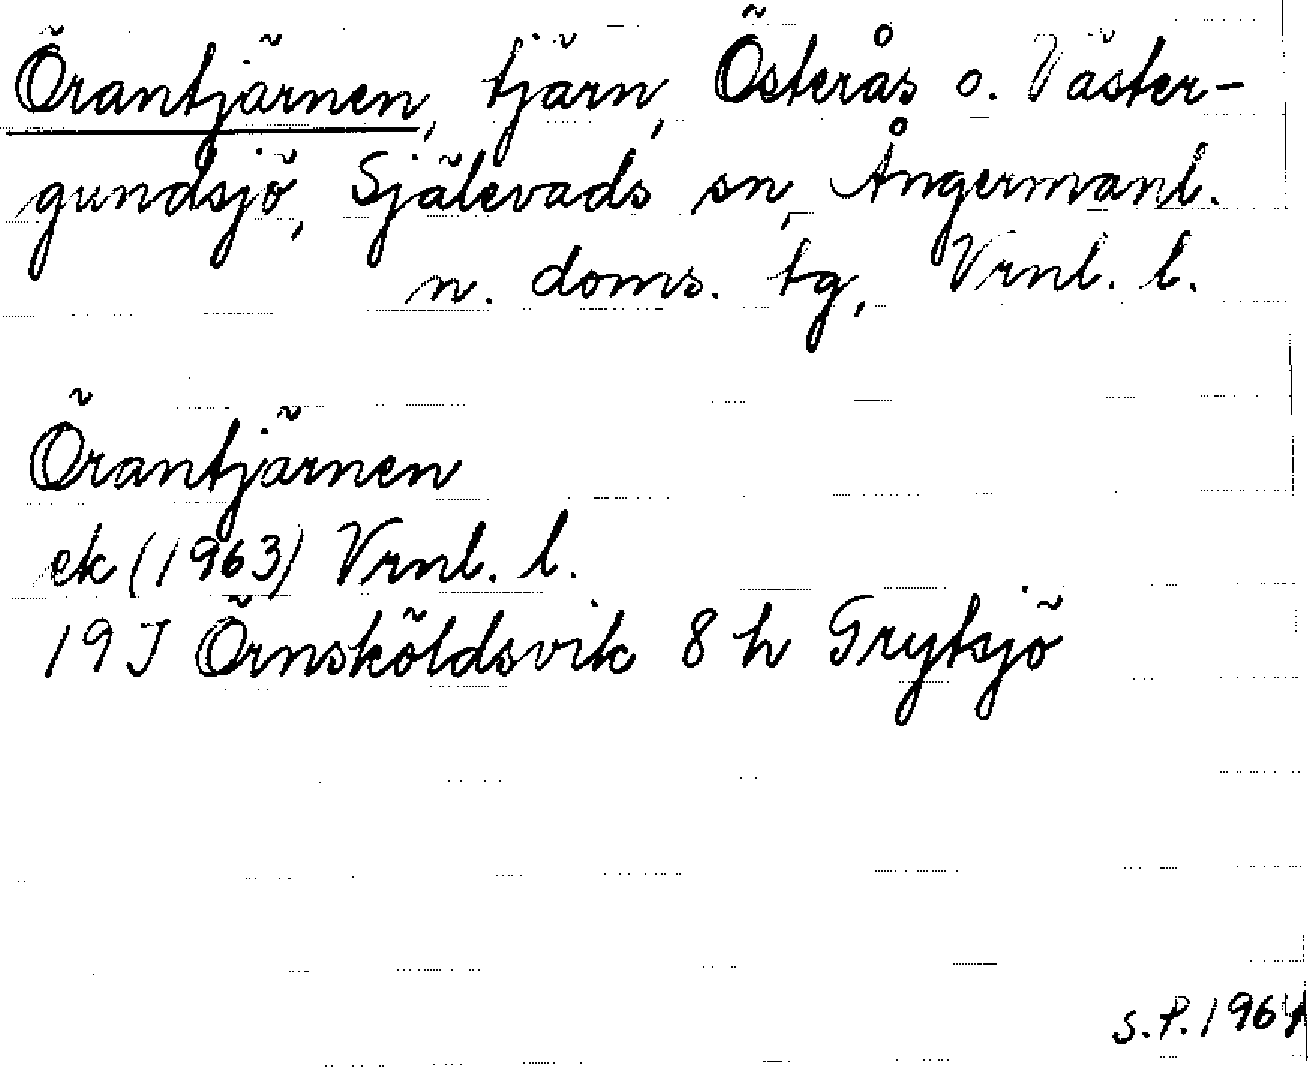 Örantjärnen, tjärn, Österås o. Väster-
gundsjö, Själevads sn, Ångermanl.
n. doms. tg, Vrnl. l.
Örantjärnen
ek (1963) Vrnl. l.
19J Örnsköldsvik 8 h Grytsjö
S.P. 1964